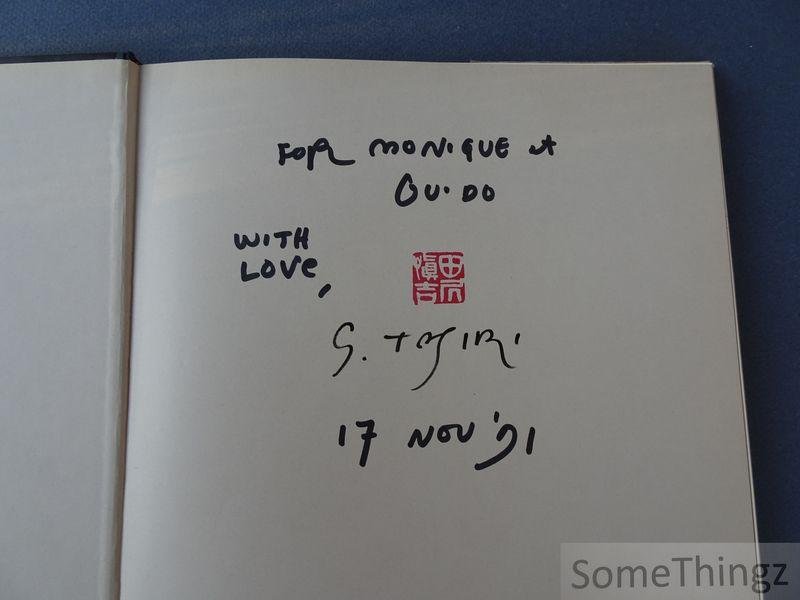 FOR MONIQUE &
GUIDO
WITH
LOVE,
田尻
慎吉
S. TAJIRI
17 NOV '91
SomeThingz